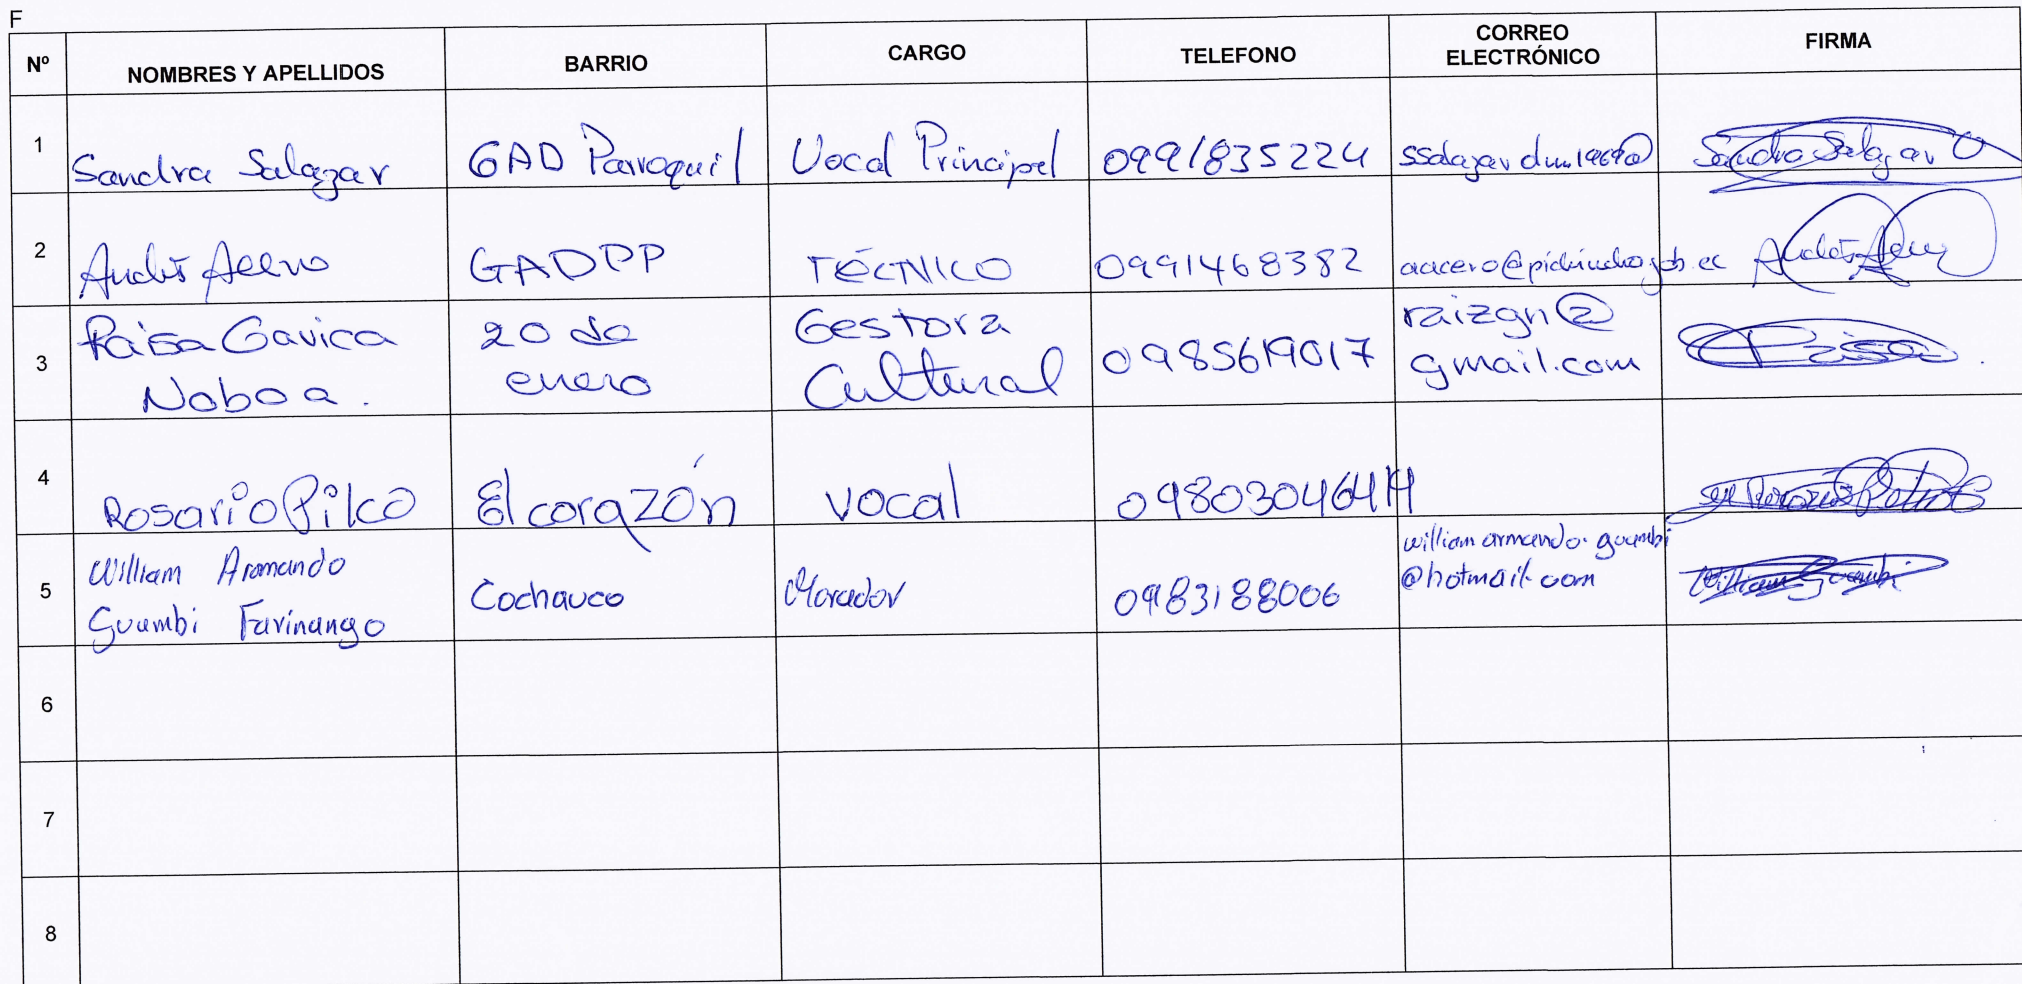 F
Nº NOMBRES Y APELLIDOS BARRIO CARGO TELEFONO CORREO ELECTRÓNICO FIRMA
1 Sandra Salazar GAD Parroquil Vocal Principal 0991835224 Sandra Salazar
2 GADPP TÉCNICO 0991468382
3 Raisa Gavica Noboa. 20 de enero Gestora Cultural 0985619017 raizgn@gmail.com Raisa
4 Rosario Pilco El corazón vocal
5 William Aramando Guambi Farinango Cochauco Morador 0983188006 william armando.guambi@hotmail.com William Guambi
6
7
8